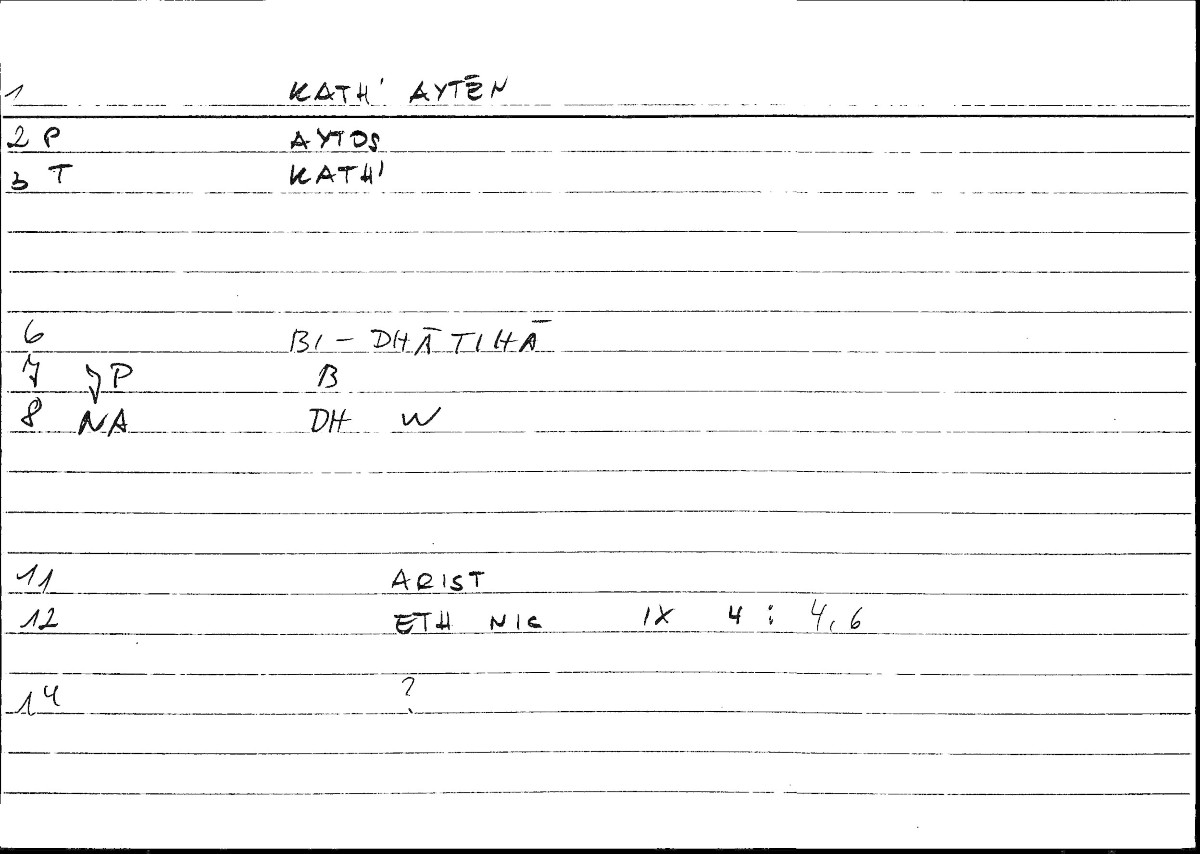 1 KATH' AYTĒN
2 P AYTOS
3 T KATH'
6 BI - DHĀTIHĀ
7 JP B
8 NA DH W
11 ARIST
12 ETH NIC IX 4 : 4,6
14 ?